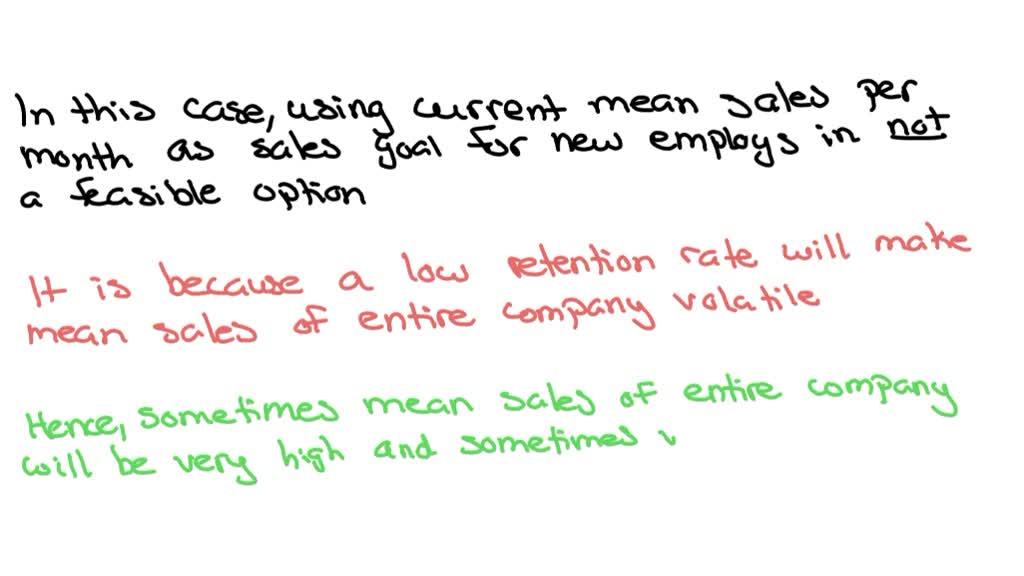 In this case, using current mean sales per
month as sales goal for new employs in not
a feasible option
It is because a low retention rate will make
mean sales of entire company volatile
Hence, sometimes mean sales of entire company
will be very high and sometimes v